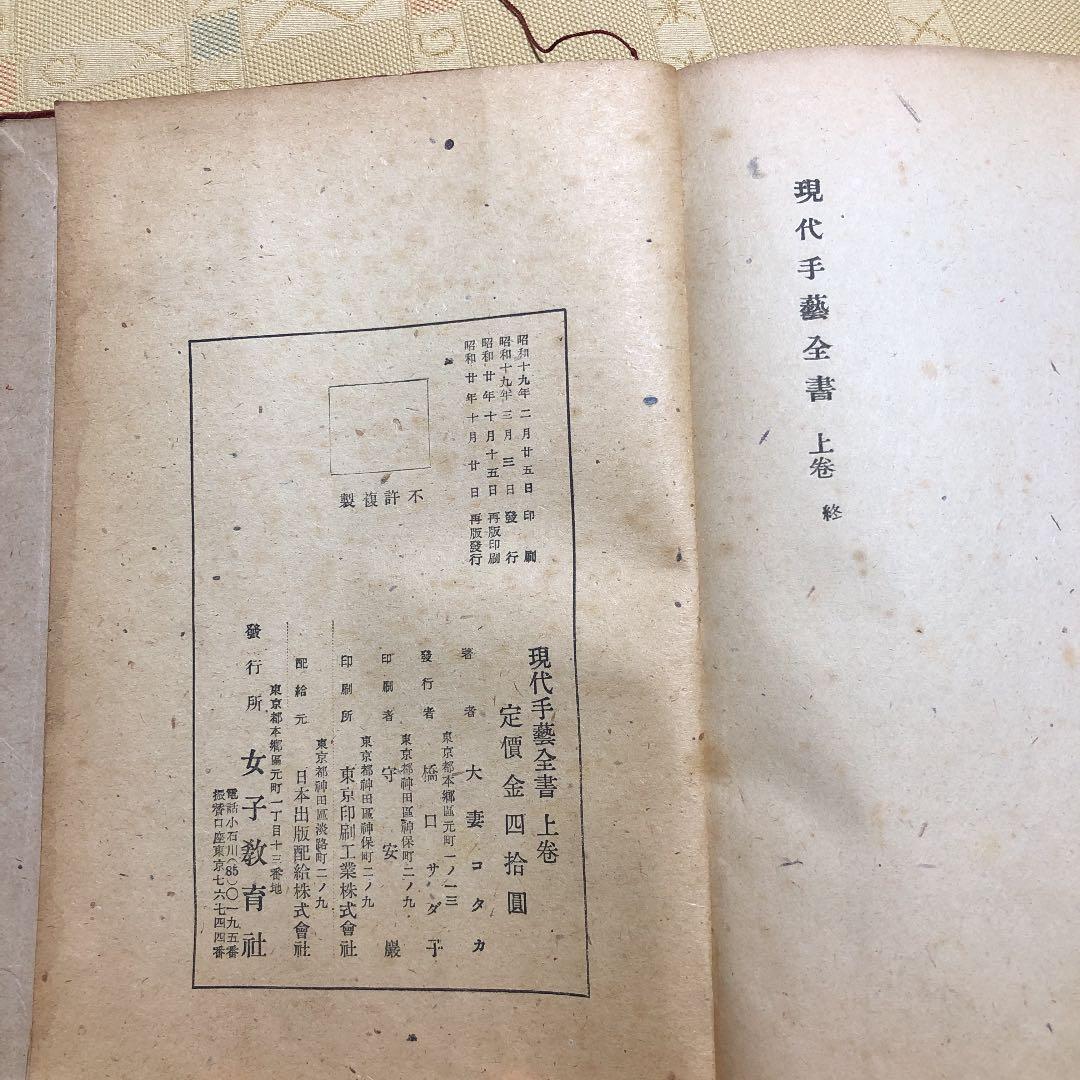 現代手藝全書 上卷 終
昭和十九年二月廿五日 印刷
昭和十九年三月三日 發行
昭和廿年十月十五日 再版印刷
昭和廿年十月廿日 再版發行
不許複製
現代手藝全書 上卷
定價金四拾圓
著者 大妻コタカ
東京都本鄕區元町一ノ一三
發行者 橋口サダ子
東京都神田區神保町二ノ九
印刷者 守安巖
東京都神田區神保町二ノ九
印刷所 東京印刷工業株式會社
東京都神田區淡路町二ノ九
配給元 日本出版配給株式會社
東京都本鄕區元町一丁目十三番地
發行所 女子敎育社
電話小石川(85)〇一九五番
振替口座東京七六七四四番